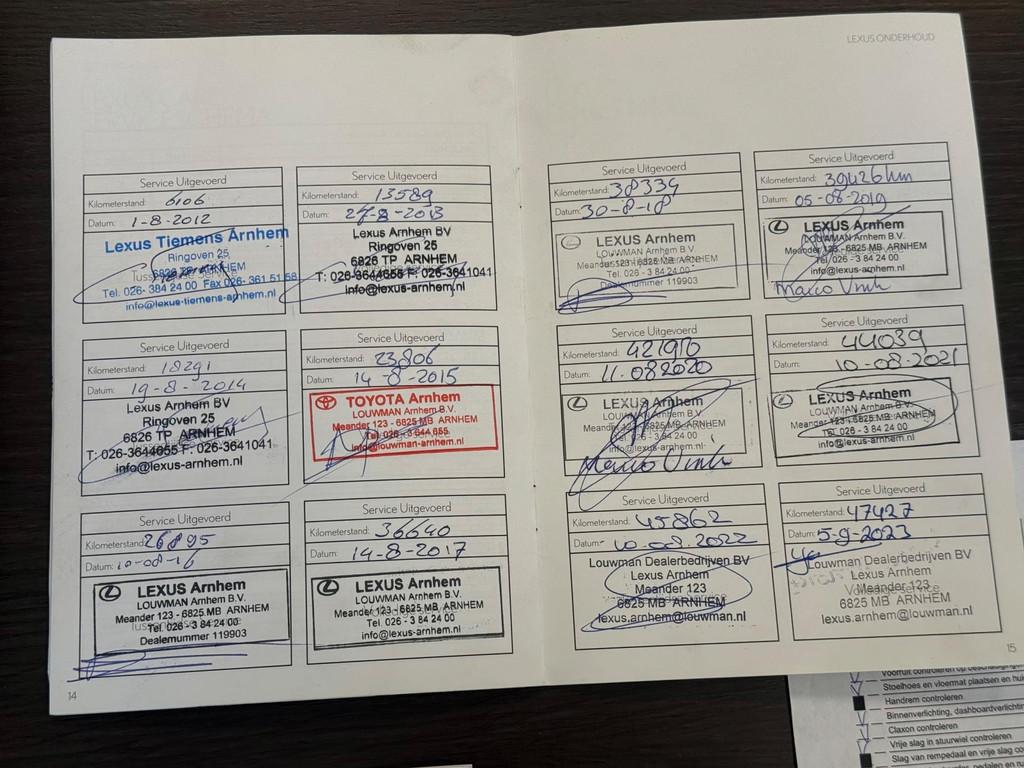 LEXUS ONDERHOUD
Service Uitgevoerd
Kilometerstand: 6106
Datum: 1-8-2012
Lexus Tiemens Arnhem
Ringoven 25
6826 TP ARNHEM
Tel. 026- 384 24 00 Fax 026- 361 51 58
info@lexus-tiemens-arnhem.nl
Service Uitgevoerd
Kilometerstand: 13589
Datum: 27-8-2013
Lexus Arnhem BV
Ringoven 25
6826 TP ARNHEM
T: 026-3644655 F: 026-3641041
info@lexus-arnhem.nl
Service Uitgevoerd
Kilometerstand: 18291
Datum: 19-8-2014
Lexus Arnhem BV
Ringoven 25
6826 TP ARNHEM
T: 026-3644655 F: 026-3641041
info@lexus-arnhem.nl
Service Uitgevoerd
Kilometerstand: 23806
Datum: 14-8-2015
TOYOTA Arnhem
LOUWMAN Arnhem B.V.
Meander 123 - 6825 MB ARNHEM
Tel. 026 - 3 644 655
info@louwman-arnhem.nl
Service Uitgevoerd
Kilometerstand: 26895
Datum: 10-08-16
LEXUS Arnhem
LOUWMAN Arnhem B.V.
Meander 123 - 6825 MB ARNHEM
Tel. 026 - 3 84 24 00
Dealernummer 119903
Service Uitgevoerd
Kilometerstand: 36640
Datum: 14-8-2017
LEXUS Arnhem
LOUWMAN Arnhem B.V.
Meander 123 - 6825 MB ARNHEM
Tel. 026 - 3 84 24 00
info@lexus-arnhem.nl
14
Service Uitgevoerd
Kilometerstand: 38339
Datum: 30-8-18
LEXUS Arnhem
LOUWMAN Arnhem B.V.
Meander 123 - 6825 MB ARNHEM
Tel. 026 - 3 84 24 00
Dealernummer 119903
Service Uitgevoerd
Kilometerstand: 39426km
Datum: 05-08-2019
LEXUS Arnhem
LOUWMAN Arnhem B.V.
Meander 123 - 6825 MB ARNHEM
Tel. 026 - 3 84 24 00
info@lexus-arnhem.nl
Marco Vink
Service Uitgevoerd
Kilometerstand:
Datum: 11-082020
LEXUS Arnhem
LOUWMAN Arnhem B.V.
Meander 123 - 6825 MB ARNHEM
Tel. 026 - 3 84 24 00
info@lexus-arnhem.nl
Marco Vink
Service Uitgevoerd
Kilometerstand: 44039
Datum: 10-08-2021
LEXUS Arnhem
LOUWMAN Arnhem B.V.
Meander 123 - 6825 MB ARNHEM
Tel. 026 - 3 84 24 00
info@lexus-arnhem.nl
Service Uitgevoerd
Kilometerstand: 45862
Datum: 10-08-2022
Louwman Dealerbedrijven BV
Lexus Arnhem
Meander 123
6825 MB ARNHEM
lexus.arnhem@louwman.nl
Service Uitgevoerd
Kilometerstand: 47427
Datum: 5-9-2023
Louwman Dealerbedrijven BV
Lexus Arnhem
Meander 123
6825 MB ARNHEM
lexus.arnhem@louwman.nl
15
Stoelhoes en vloermat plaatsen en
Handrem controleren
Binnenverlichting, dashboardverlichting
Claxon controleren
Vrije slag in stuurwiel controleren
Slag van rempedaal en vrije slag